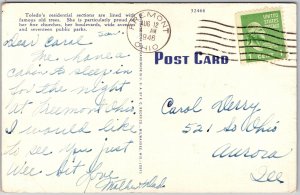 Toledo's residential sections are lined with
famous old trees. She is particularly proud of
her fine churches, her boulevards, wide avenues
and seventeen public parks.
92466
FREMONT
AUG 12
AM
1946
OHIO
POST CARD
Dear Carol
We found a
cabin to sleep in
for the night
at Fremont Ohio.
I would like
to see you just
wee bit
Love
Mother & Dad
Carol Derry
521 So Ohio
Aurora
Ill